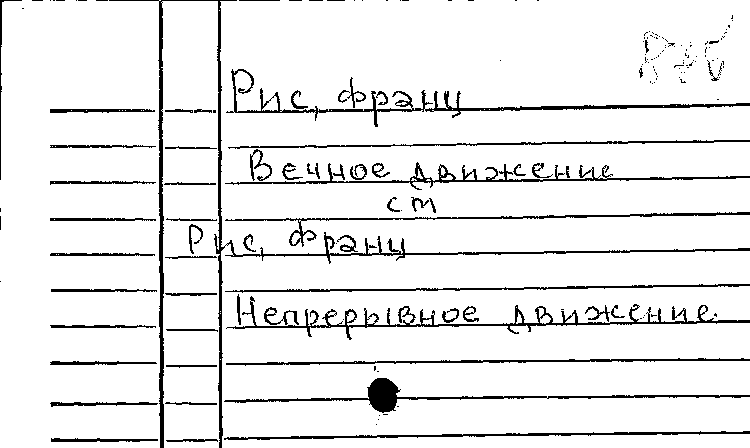 Рис, франц
Вечное движение
ст
Рис, франц
Непрерывное движение.